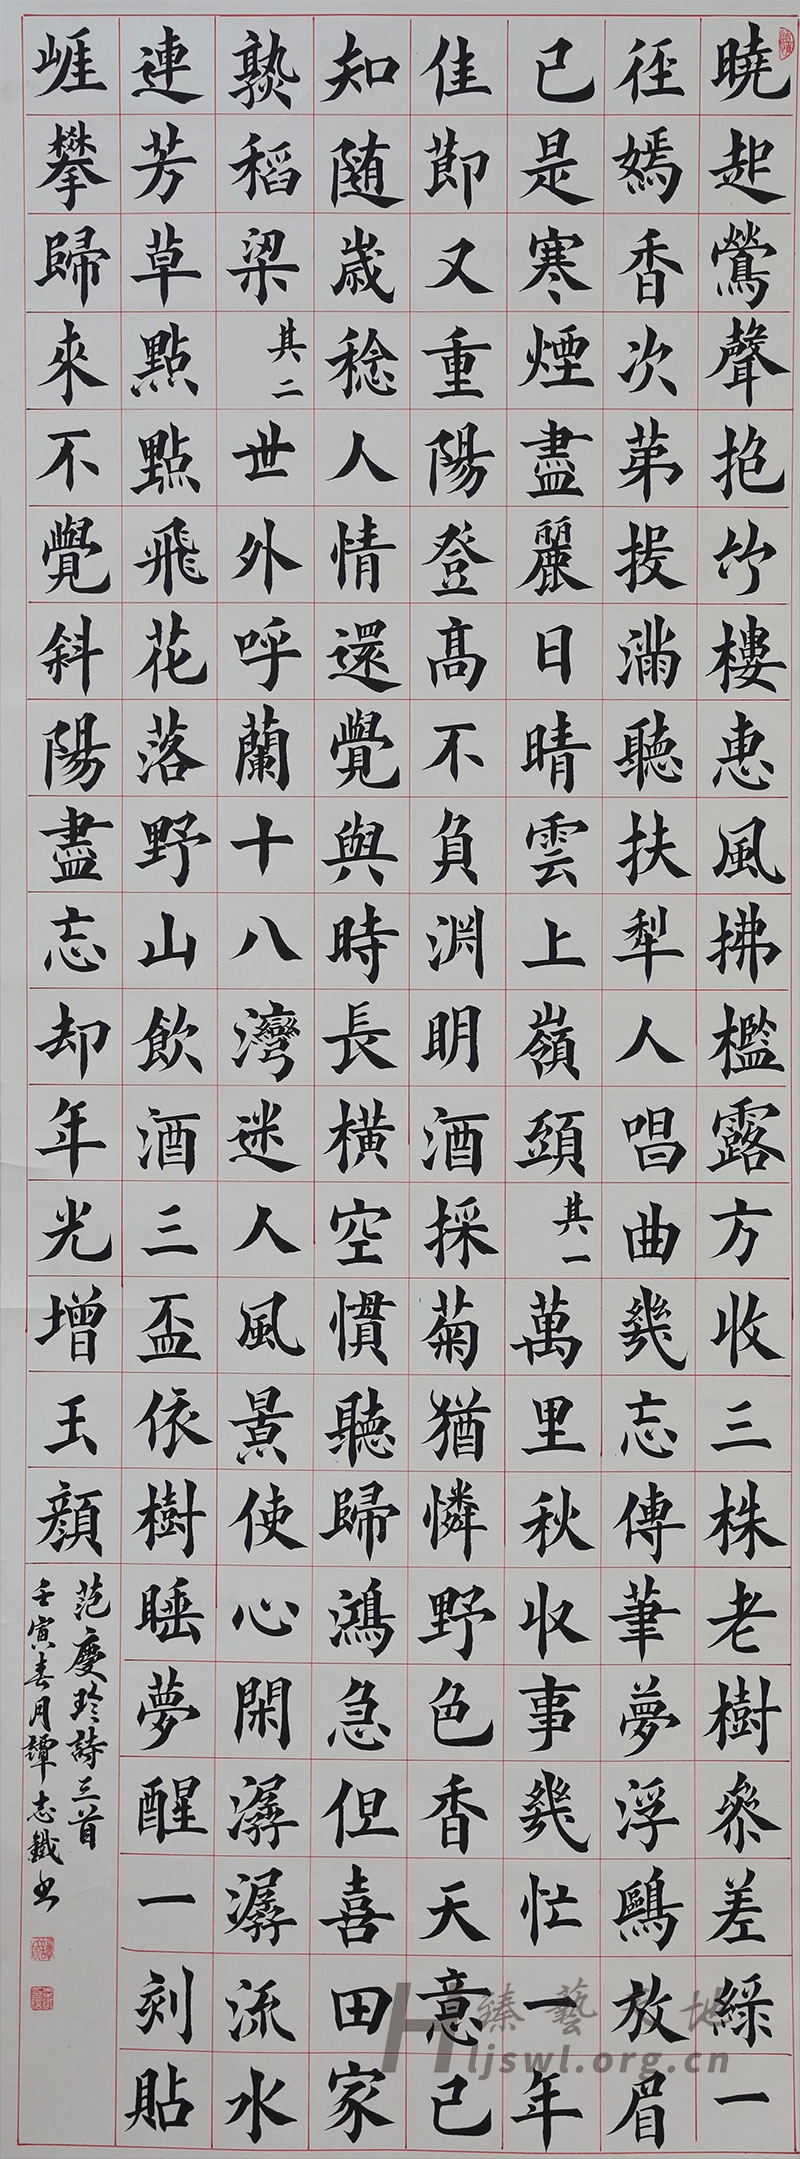 曉起鶯聲抱竹樓惠風拂檻露方收三株老樹參差綠一
徑嫣香次第投滿聽扶犁人唱曲幾忘傳筆夢浮鷗放眉
已是寒煙盡麗日晴雲上嶺頭其一萬里秋收事幾忙一年
佳節又重陽登高不負淵明酒採菊猶憐野色香天意已
知隨歲稔人情還覺與時長橫空慣聽歸鴻急但喜田家
熟稻粱其二世外呼蘭十八灣迷人風景使心閑潺潺流水
連芳草點點飛花落野山飲酒三盃依樹睡夢醒一刻貼
崖攀歸來不覺斜陽盡忘却年光增玉顏
范慶玲詩三首
壬寅春月譚志鐵書
臻藝天地
Hljswl.org.cn